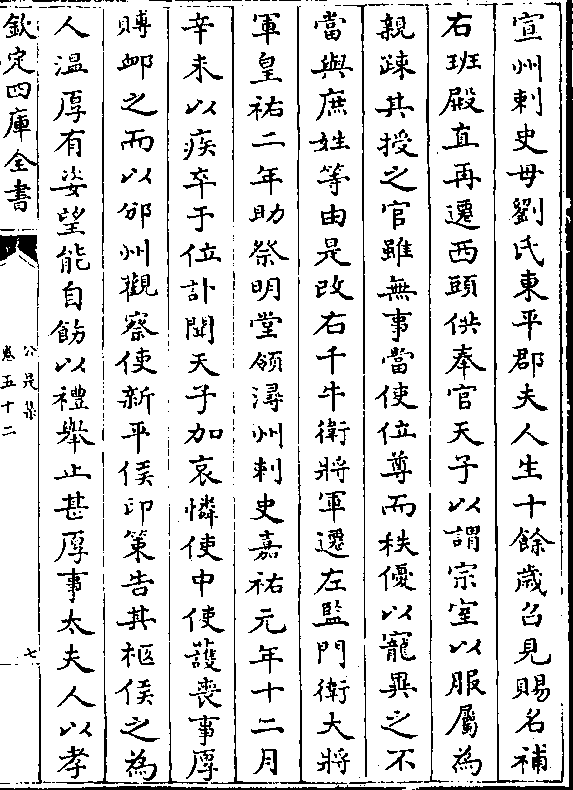 宣州刺史母劉氏東平郡夫人生十餘歳召見賜名補
右班殿直再遷西頭供奉官天子以謂宗室以服屬為
親疎其授之官雖無事當使位尊而秩優以寵異之不
當與庶姓等由是改右千牛衛將軍遷左監門衛大將
軍皇祐二年助祭明堂領潯州刺史嘉祐元年十二月
辛未以疾卒于位訃聞天子加哀憐使中使護喪事厚
賻䘏之而以邠州觀察使新平侯印策告其柩侯之為
人溫厚有姿望能自飭以禮舉止甚厚事太夫人以孝
欽定四庫全書
公是集
卷五十二
七